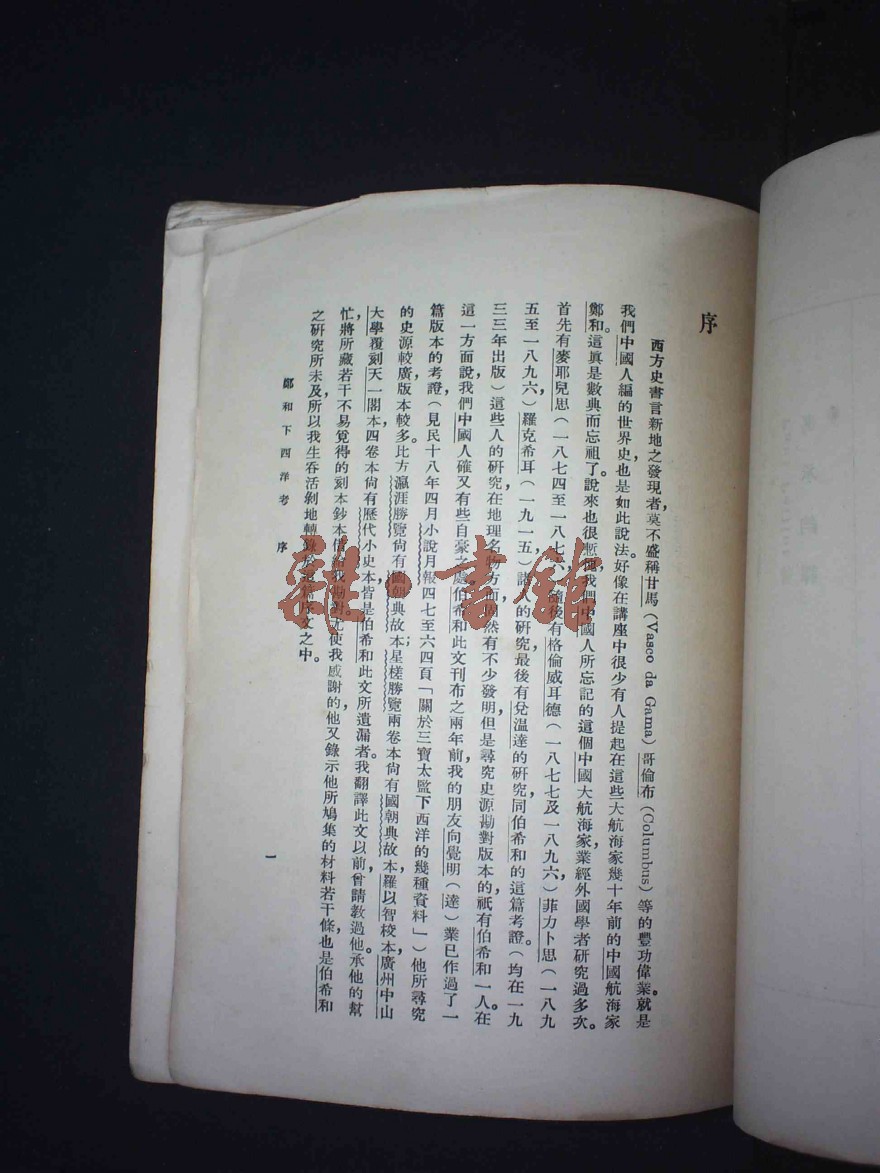 序
西方史書言新地之發現者，莫不盛稱甘馬（Vasco da Gama）哥倫布（Columbus）等的豐功偉業。就是
我們中國人編的世界史也是如此說法好像在講座中很少有人提起在這些大航海家幾十年前的中國航海家
鄭和。這真是數典而忘祖了。說來也很慚愧，我們中國人所忘記的這個中國大航海家業經外國學者研究過多次。
首先有麥耶兒思（一八七四至一八七六）隨後有格倫威耳德（一八七七及一八九六）菲力卜思（一八九
五至一八九六）羅克希耳（一九一五）諸人的研究，最後有兌溫達的研究，同伯希和的這篇考證。（均在一九
三三年出版）這些人的研究，在地理名物方面固然有不少發明，但是尋究史源勘對版本的，祇有伯希和一人。在
這一方面說，我們中國人確又有些自豪之處，伯希和此文刊布之兩年前，我的朋友向覺明（達）業已作過了一
篇版本的考證（見民十八年四月小說月報四七至六四頁「關於三寶太監下西洋的幾種資料」）他所尋究
的史源較廣，版本較多。比方瀛涯勝覽尚有國朝典故本；星槎勝覽兩卷本尚有國朝典故本，羅以智校本，廣州中山
大學覆刻天一閣本，四卷本尚有歷代小史本，皆是伯希和此文所遺漏者。我翻譯此文以前，曾請教過他。承他的幫
忙，將所藏若干不易覓得的刻本鈔本借給我勘對，尤使我感謝的，他又錄示他所鳩集的材料若干條，也是伯希和
之研究所未及，所以我生吞活剝地轉錄於這篇序文之中。
鄭和下西洋考 序
一
雜·書館